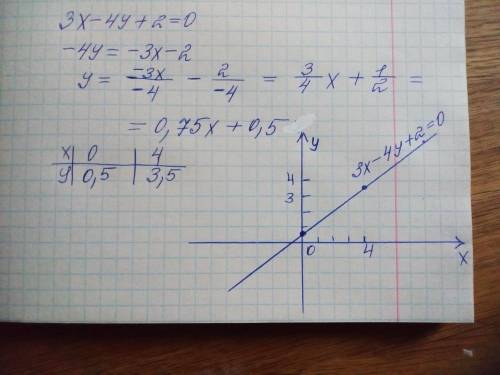 3x-4y+2=0
-4y=-3x-2
y= -3x/-4 - 2/-4 = 3/4 x + 1/2 =
=0,75x+0,5
x 0 4
y 0,5 3,5
y
3x-4y+2=0
4
3
0 4
x